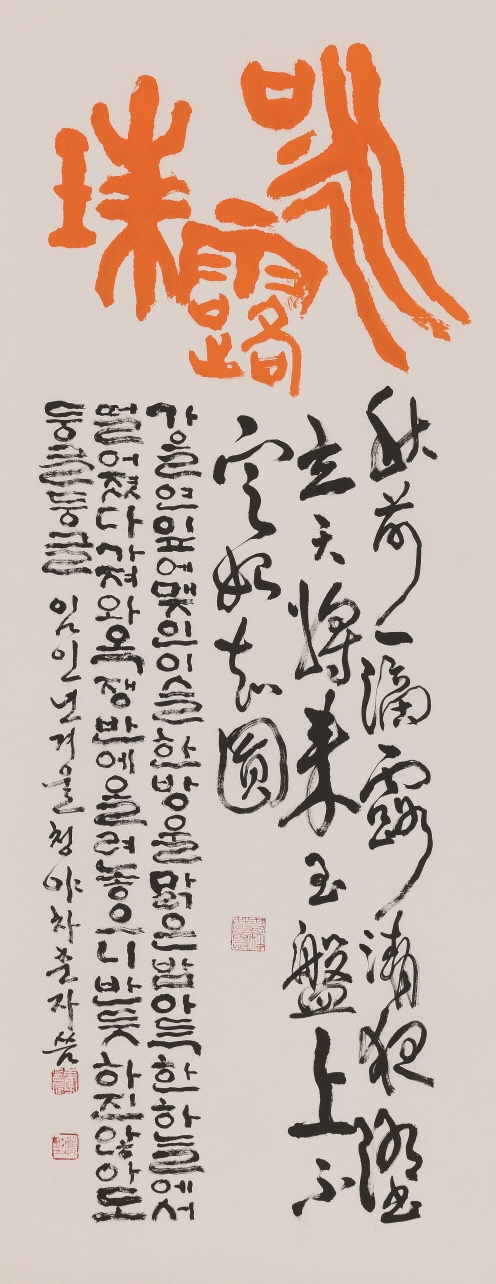 咏露珠
秋荷一滴露清夜墜
玄天將来玉盤上不
定始知圓
가을연잎에맺인이슬한방울맑은밤아득한하늘에서
떨어졌다가져와옥쟁반에올려놓으니반듯하진않아도
둥글둥글 임인년겨울청야차춘자씀